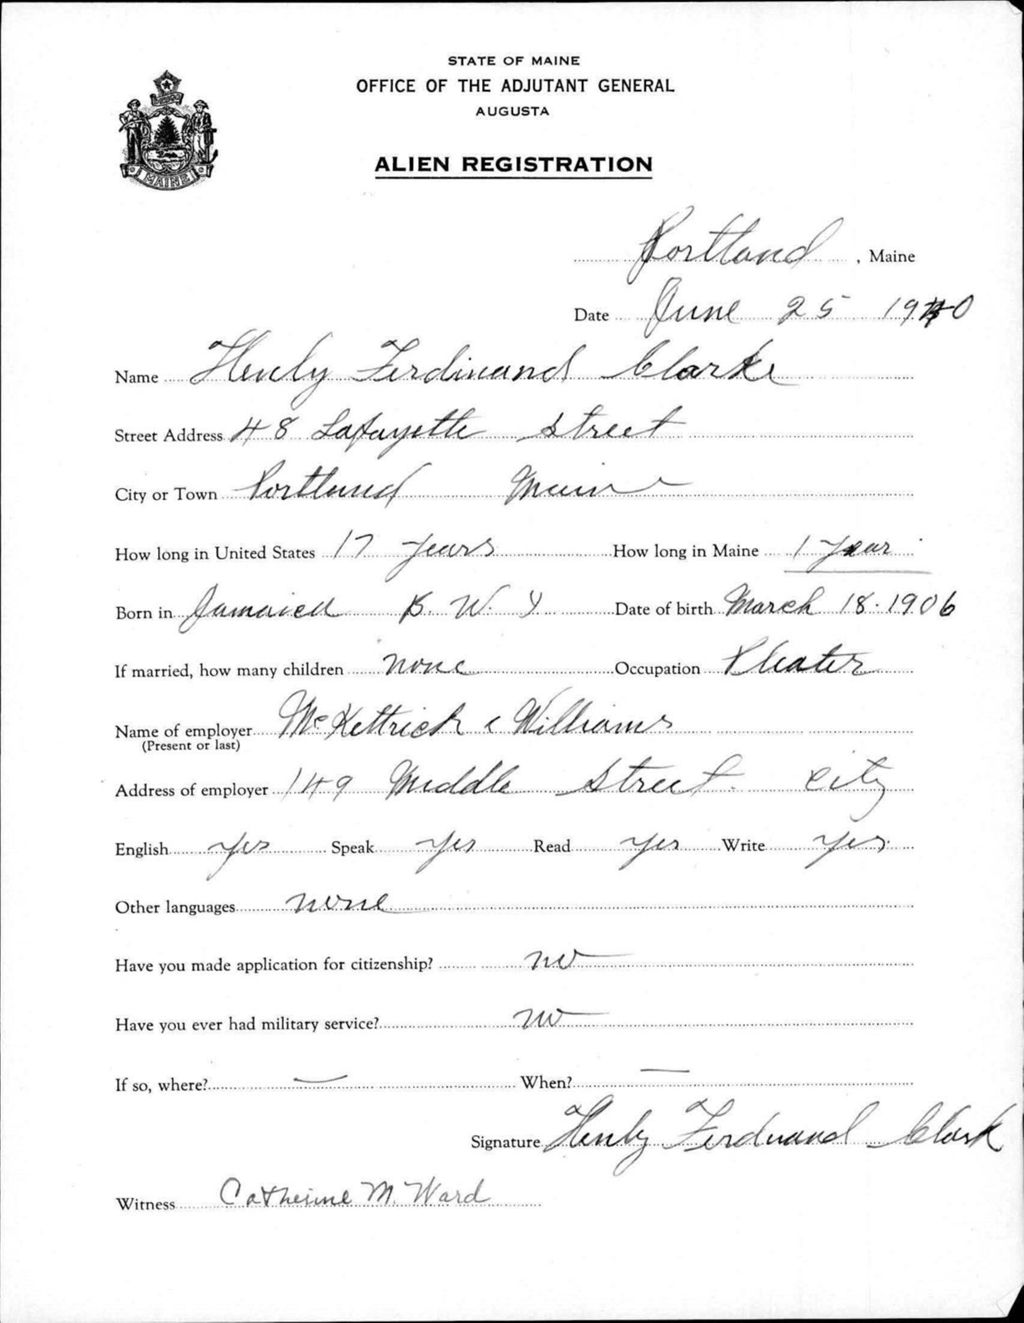 STATE OF MAINE
OFFICE OF THE ADJUTANT GENERAL
AUGUSTA
ALIEN REGISTRATION
MAINE
Portland, Maine
Date June 25 1940
Name Henly Ferdinand Clarke
Street Address 48 Lafayette Street
City or Town Portland Maine
How long in United States 17 years How long in Maine 1 year
Born in Jamaica B. W. I Date of birth March 18-1906
If married, how many children none Occupation Pleater
Name of employer McKettrick & Williams
(Present or last)
Address of employer 149 Middle Street. City
English yes Speak yes Read yes Write yes.
Other languages none
Have you made application for citizenship? no
Have you ever had military service? no
If so, where? — When? —
Signature Henly Ferdinand Clark
Witness Catherine M. Ward